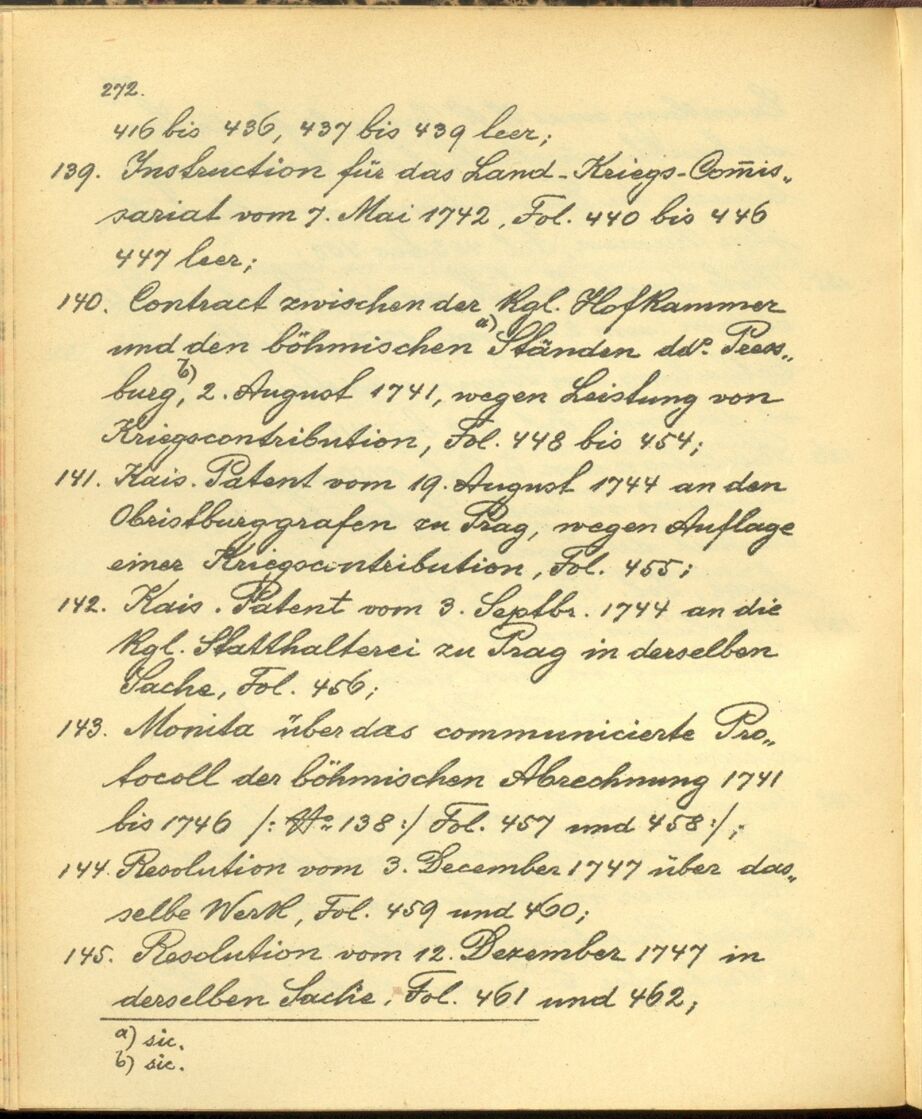 272.
416 bis 436, 437 bis 439 leer;
139. Instruction für das Land-Kriegs-Com̅is„
sariat vom 7. Mai 1742, Fol. 440 bis 446
447 leer;
140. Contract zwischen der Kgl. Hofkammer
und den böhmischen a) Ständen ddº. Press„
burg, b) 2. August 1741, wegen Leistung von
Kriegscontribution, Fol. 448 bis 454;
141. Kais. Patent vom 19. August 1744 an den
Obristburggrafen zu Prag, wegen Auflage
einer Kriegscontribution, Fol. 455;
142. Kais. Patent vom 3. Septbr. 1744 an die
Kgl. Statthalterei zu Prag in derselben
Sache, Fol. 456;
143. Monita über das communicierte Pro„
tocoll der böhmischen Abrechnung 1741
bis 1746 /: Nº 138:/ Fol. 457 und 458:/;
144. Resolution vom 3. December 1747 über das„
selbe Werk, Fol. 459 und 460;
145. Resolution vom 12. Dezember 1747 in
derselben Sache, Fol. 461 und 462;
a) sic.
b) sic.